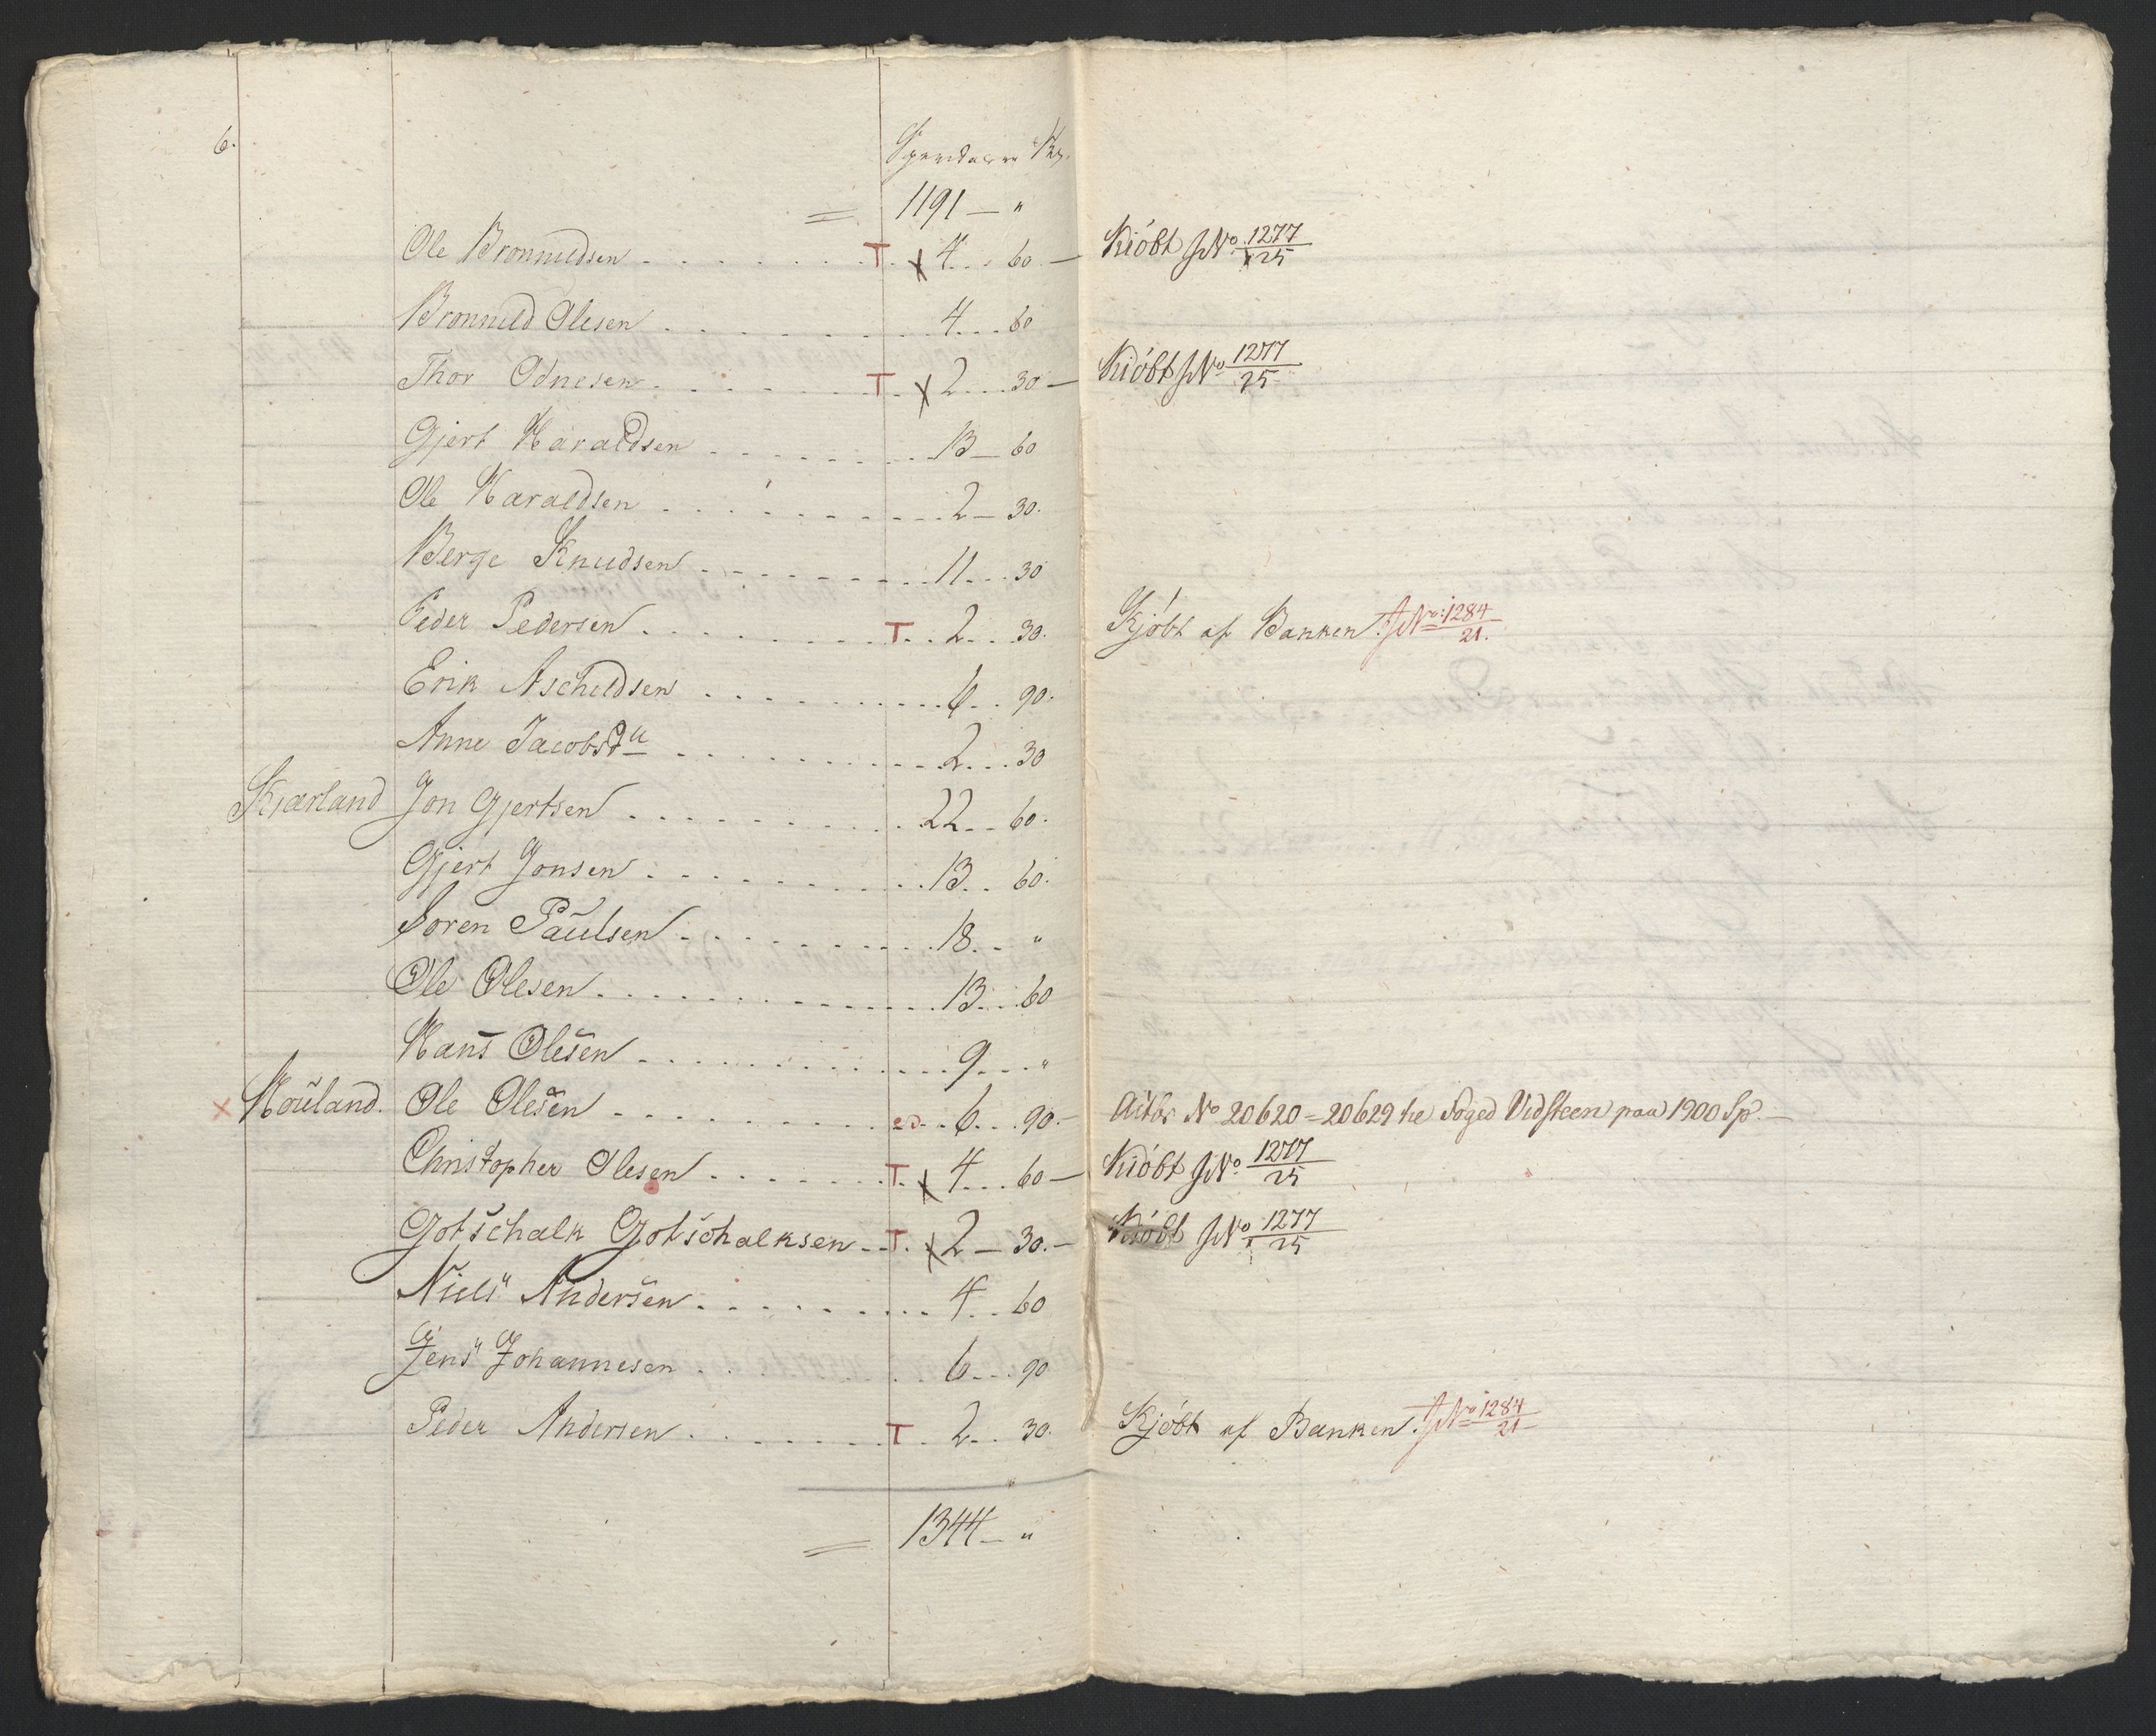 6.
Speciedaler Sk.
= 1191 — "
Ole Bronnildsen T. x 4 60 — Kióbt JNo. 1277/25
Bronnild Olesen 4 60
Thor Odnesen T. x 2 30 — Kióbt JNo 1277/25
Gjert Haraldsen 13 — 60
Ole Haraldsen 2 — 30.
Berge Knudsen 11 30
Peder Pedersen T 2 30. Kjóbt af Banken. JNo: 1284/21.
Erik Ascheldsen 6 90.
Anne Jacobsd 2 30
Kjærland Jon Gjertsen 22 60.
Gjert Jonsen 13 60.
Soren Paulsen 18 "
Ole Olesen 13 60
Hans Olesen 9 "
x Houland. Ole Olesen 6 90. No 20620 = 20629 Foged Vidsteen paa 1900 Sp. —
Christopher Olesen T. x 4 60 — Kióbt JNo 1277/25
Gotschalk Gotschalksen T. x 2 — 30. — Kióbt JNo 1277/25
Niels Andersen 4 60
Jens Johannesen 6 90
Peder Andersen T 2 30. Kjóbt af Banken. JNo 1284/21
= 1344 — "